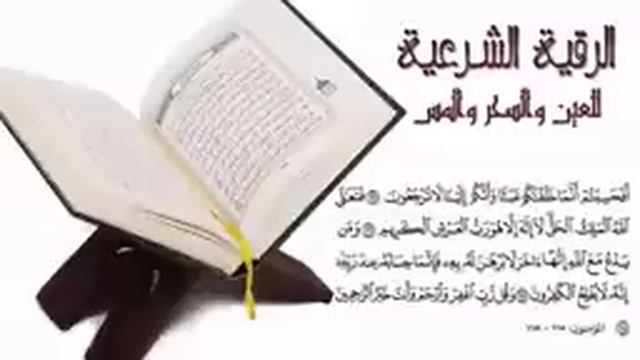 الرقية الشرعية
للعين والسحر والمس
أفحسبتم أنما خلقناكم عبثا وأنكم إلينا لا ترجعون ۝ فتعالى
الله الملك الحق لا إله إلا هو رب العرش الكريم ۝ ومن
يدع مع الله إلها ءاخر لا برهان له به فإنما حسابه عند ربه
إنه لا يفلح الكافرون ۝ وقل رب اغفر وارحم وأنت خير الراحمين
المؤمنون: ١١٥ - ١١٨